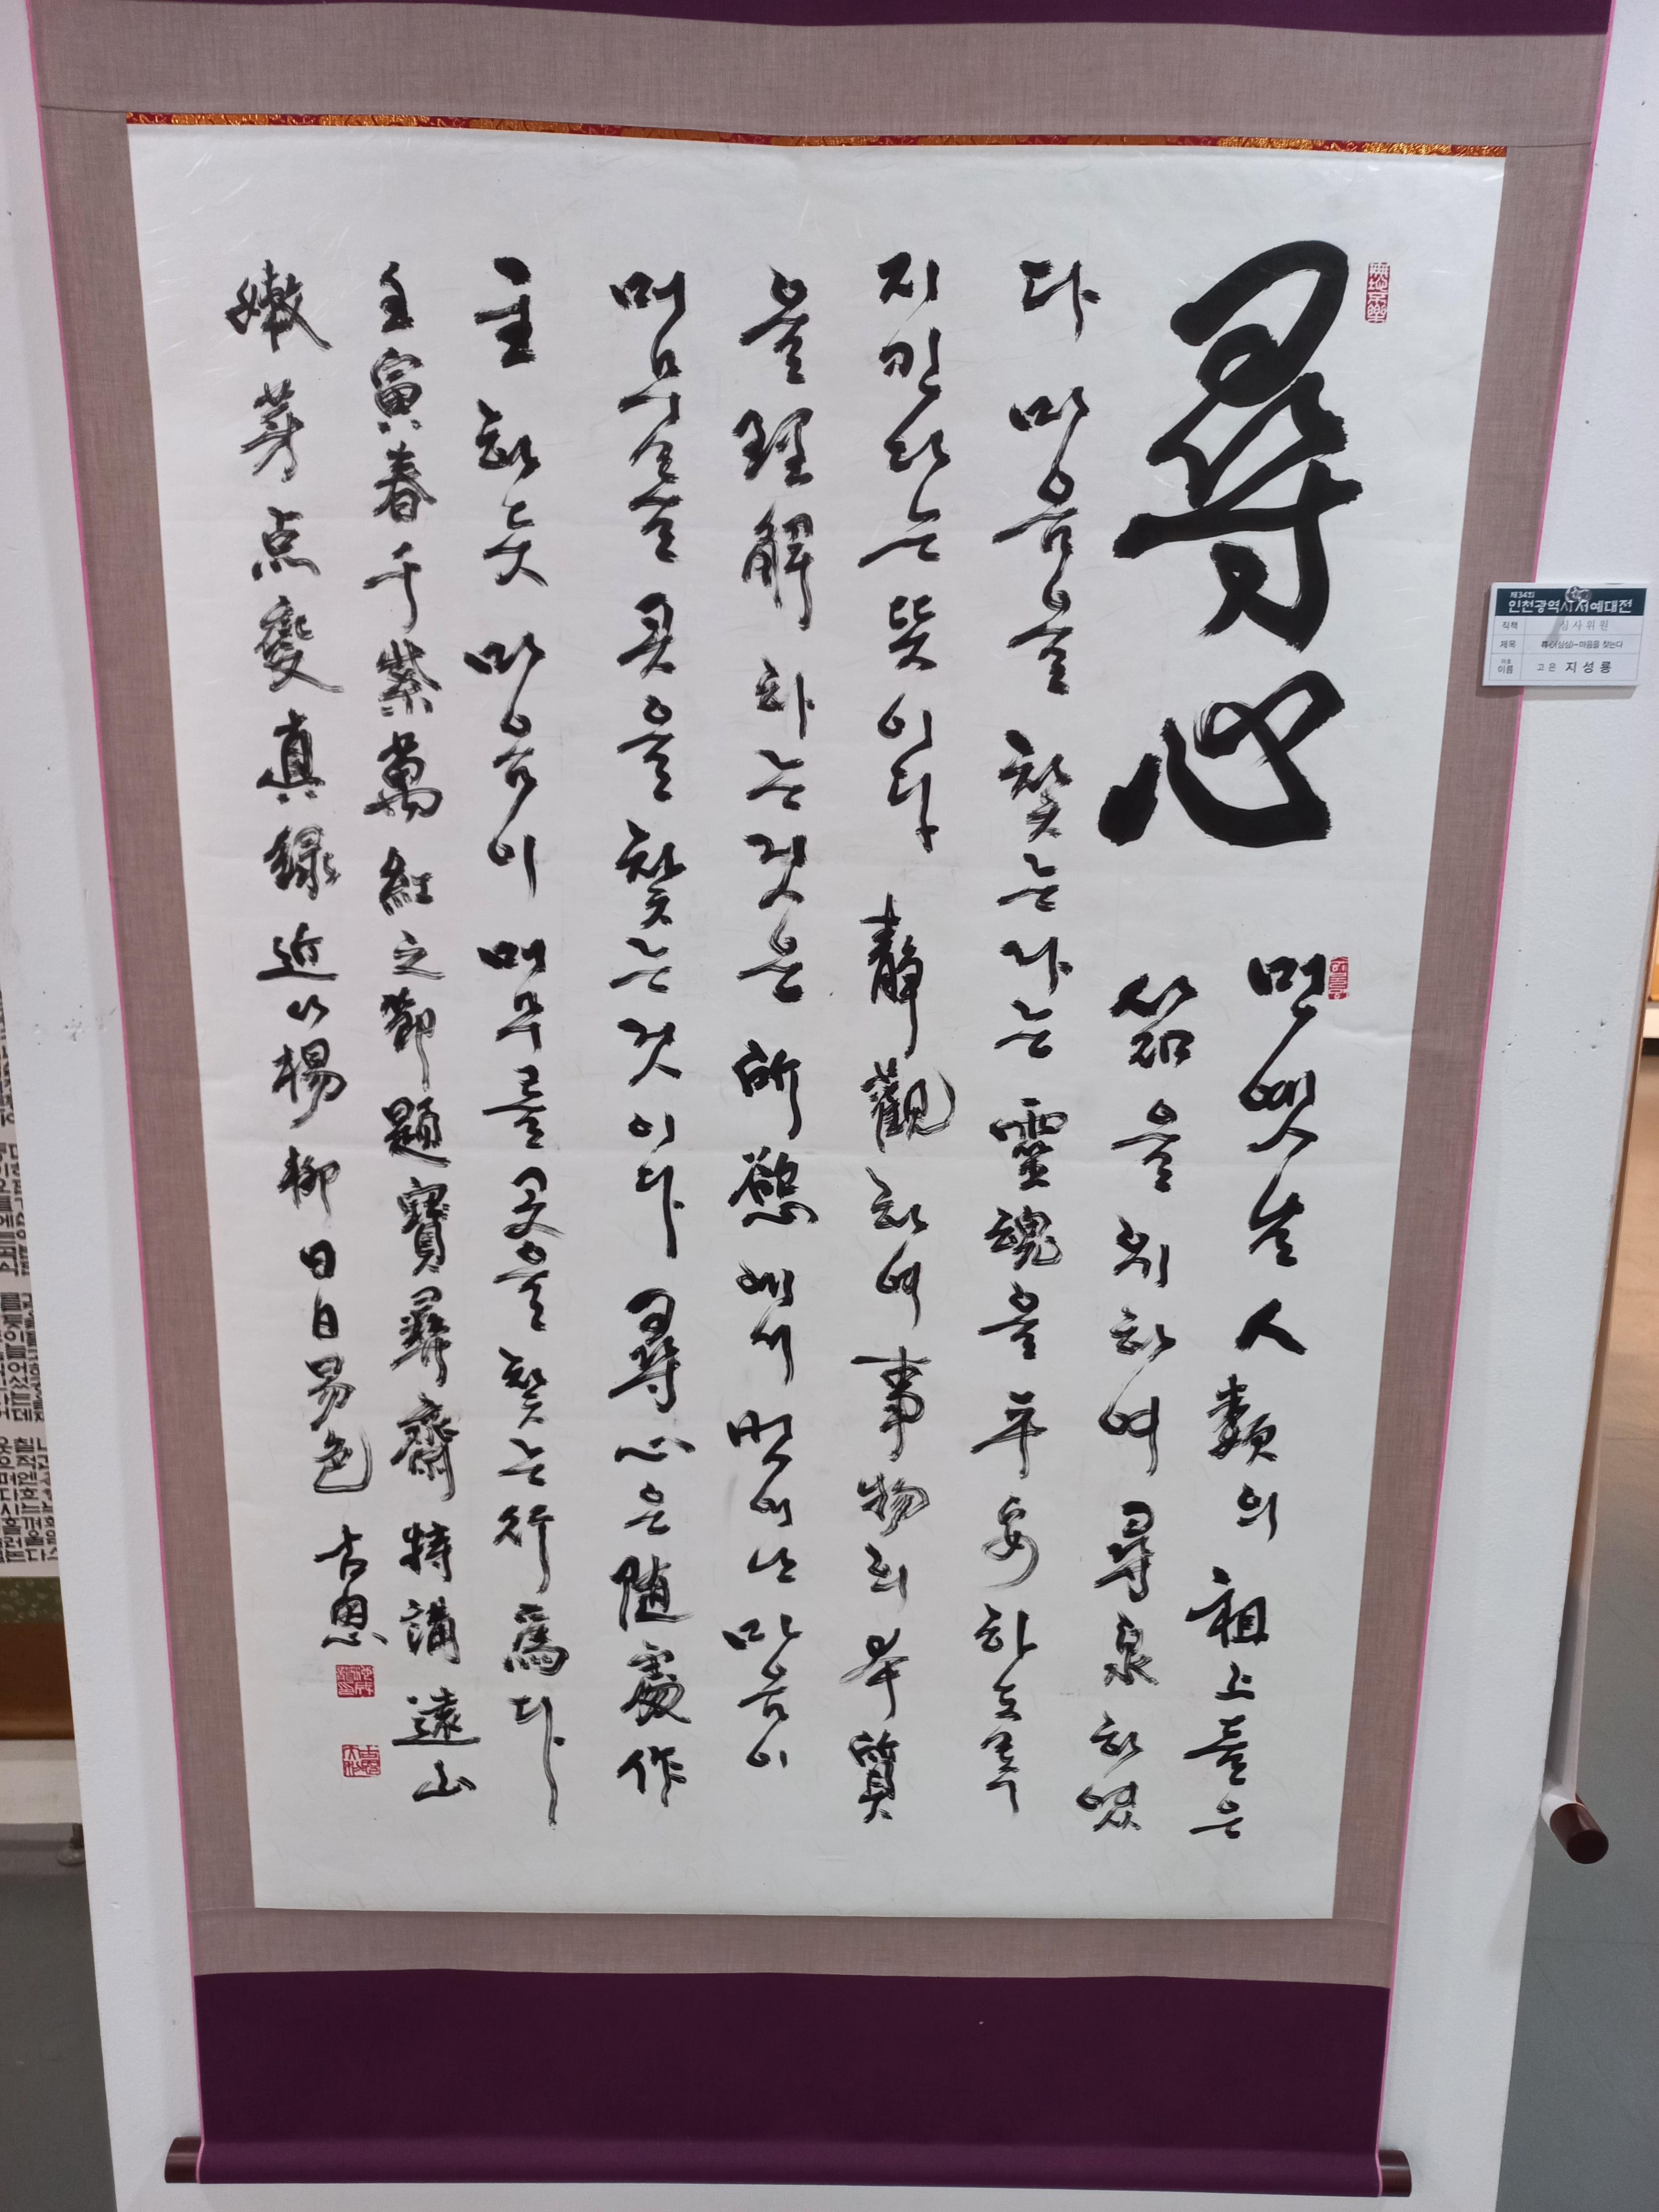 尋心
먼 옛날 人類의 祖上들은
삶을 위하여 尋泉하였
다 마음을 찾는다는 靈魂을 平安하도록
지킨다는 뜻이다 靜觀하여 事物의 本質
을 理解하는것은 所慾에서 벗어난 마음이
머무를 곳을 찾는것이다 尋心은 隨處作
主하듯 마음이 머무를 곳을 찾는 行爲다
壬寅春千紫萬紅之節題寶尋齋特講遠山
嫩芽点變真綠近水楊柳日日易色 古恩
제34회
인천광역시서예대전
직책 심사위원
제목 尋心(심심)-마음을 찾는다
아호 이름 고은 지성룡